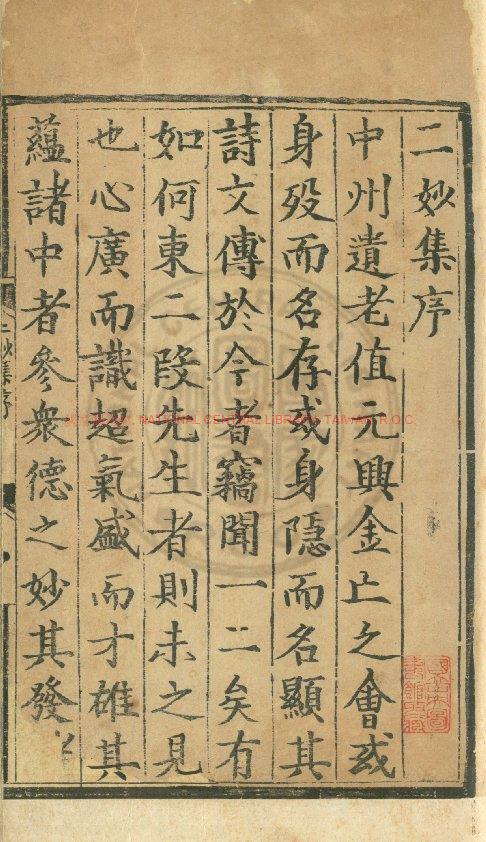 二妙集序
中州遺老值元興金亡之會或
身歿而名存或身隱而名顯其
詩文傳於今者竊聞一二矣有
如何東二段先生者則未之見
也心廣而識超氣盛而才雄其
蘊諸中者參衆德之妙其發
二妙集序
NATIONAL CENTRAL LIBRARY, TAIWAN, R.O.C.